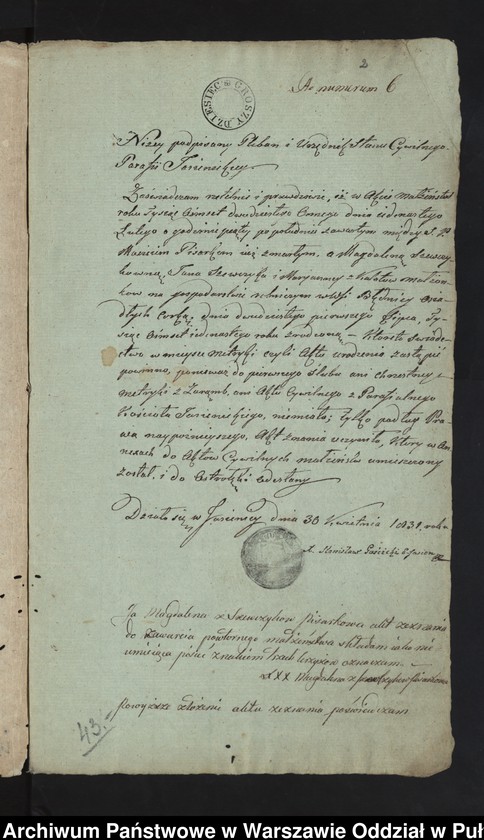 2
Ad numerum 6
DZIESIĘĆ GROSZY
Niżey podpisany Pleban i Urzędnik Stanu Cywilnego
Parafii Jasienickiey
Zaświadczam rzetelnie i prawdziwie, iż w Akcie małżeństwa
roku tysiąc ośmset dwudziestego ósmego dnia iedenastego
Lutego o godzinie piątey po południu zawartym między
Pisarkiem iuż zmarłym, a Magdaleną Szewczy-
kówną, Jana Szewczyka i Maryanny z małżon-
ków na gospodarstwie rolniczym w wsi osia-
dłych Córką, dnia dwudziestego pierwszego Lipca, Ty-
siąc ośmset iedenastego roku zrodzoną — które świade-
ctwo w mieysce metryki czyli Aktu urodzenia zastąpić
powinno, ponieważ do pierwszego ślubu ani chrzestney
metryki z Zaremb, ani Aktu Cywilnego z Parafialnego
Kościoła Jasienickiego, niemiała; tylko podług Pra-
wa naypóźnieyszego, Akt znania uczyniła, który w An-
nexach do Aktów Cywilnych małżeństw umieszczony
został, i do Ostrołęki odesłany
Działo się w Jasienicy dnia 30 Kwietnia 1831. roku
X. Stanisław
Ja Magdalena z Szewczyków Pisarkowa akt zeznania
do zawarcia powtórnego małżeństwa składam iako nie
umieiąca pisać znakiem trzech krzyżów oznaczam. —
XXX Magdalena z Szewczyków Pisarkowa
Powyższe złożenie aktu zeznania poświadczam
43.-
Archiwum Państwowe w Warszawie Oddział w Puł